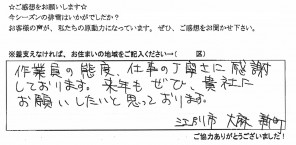 ☆ご感想をお願いします☆
今シーズンの排雪はいかがでしたか？
お客様の声が、私たちの原動力になっています。ぜひ、ご感想をお聞かせ下さい。
※差支えなければ、お住まいの地域をご記入ください→（　　　区）
作業員の態度、仕事の丁寧さに感謝
しております。来年もぜひ、貴社に
お願いしたいと思っております。
江別市 大麻 新町
ご協力ありがとうございました！